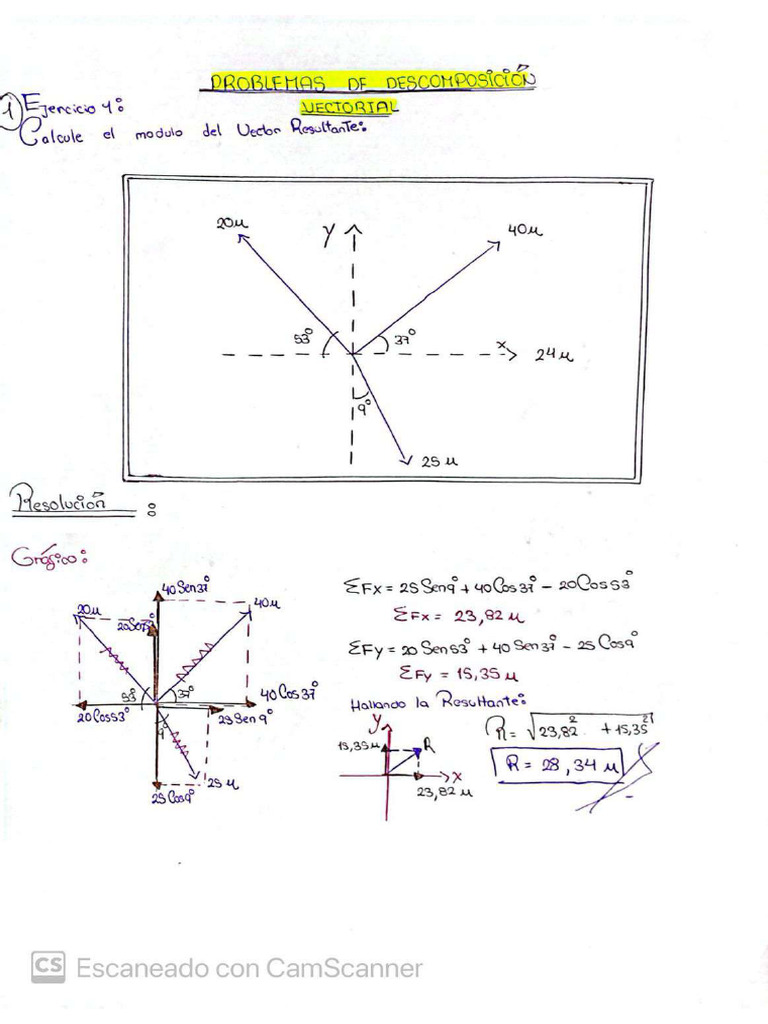 PROBLEMAS DE DESCOMPOSICIÓN
VECTORIAL
1) Ejercicio 4:
Calcule el modulo del Vector Resultante:
20μ
y
40μ
53°
37°
x
24μ
9°
25μ
Resolución:
Gráfico:
40Sen37°
20μ
40μ
53°
37°
40Cos37°
20Cos53°
25Sen9°
9°
25μ
25Cos9°
ΣFx = 25Sen9° + 40Cos37° - 20Cos53°
ΣFx = 23,82μ
ΣFy = 20Sen53° + 40Sen37° - 25Cos9°
ΣFy = 15,35μ
Hallando la Resultante:
y
15,35μ
R
x
23,82μ
R = √23,82² + 15,35²
R = 28,34μ
CS Escaneado con CamScanner